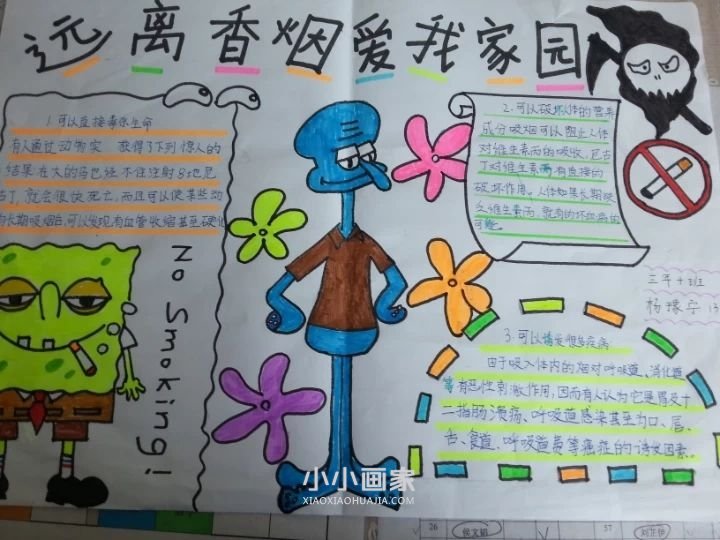 远离香烟爱我家园
1.可以直接毒杀生命
有人通过动物实 获得了下列惊人的
结果 在大的马也经不住注射8滴尼
古丁,就会很快死亡,而且可以使某些动
长期吸烟后,可以发现有血管收缩甚至硬化
2.可以破坏人体的营养
成分吸烟可以阻止人体
对维生素丙的吸收,尼古
丁对维生素丙有直接的
破坏作用。人体如果长期
乏维生素丙,就有的坏血病的
可能。
No Smoking!
三年十班
杨
3.可以诱发很多疾病
由于吸入体内的烟对呼吸道、消化道
等有恶性刺激作用,因而有人认为它是胃及十
二指肠溃疡、呼吸道感染甚至为口、唇、
舌、食道、呼吸道炎等癌症的诱发因素。
小小画家
XIAOXIAOHUAJIA.COM
26
37